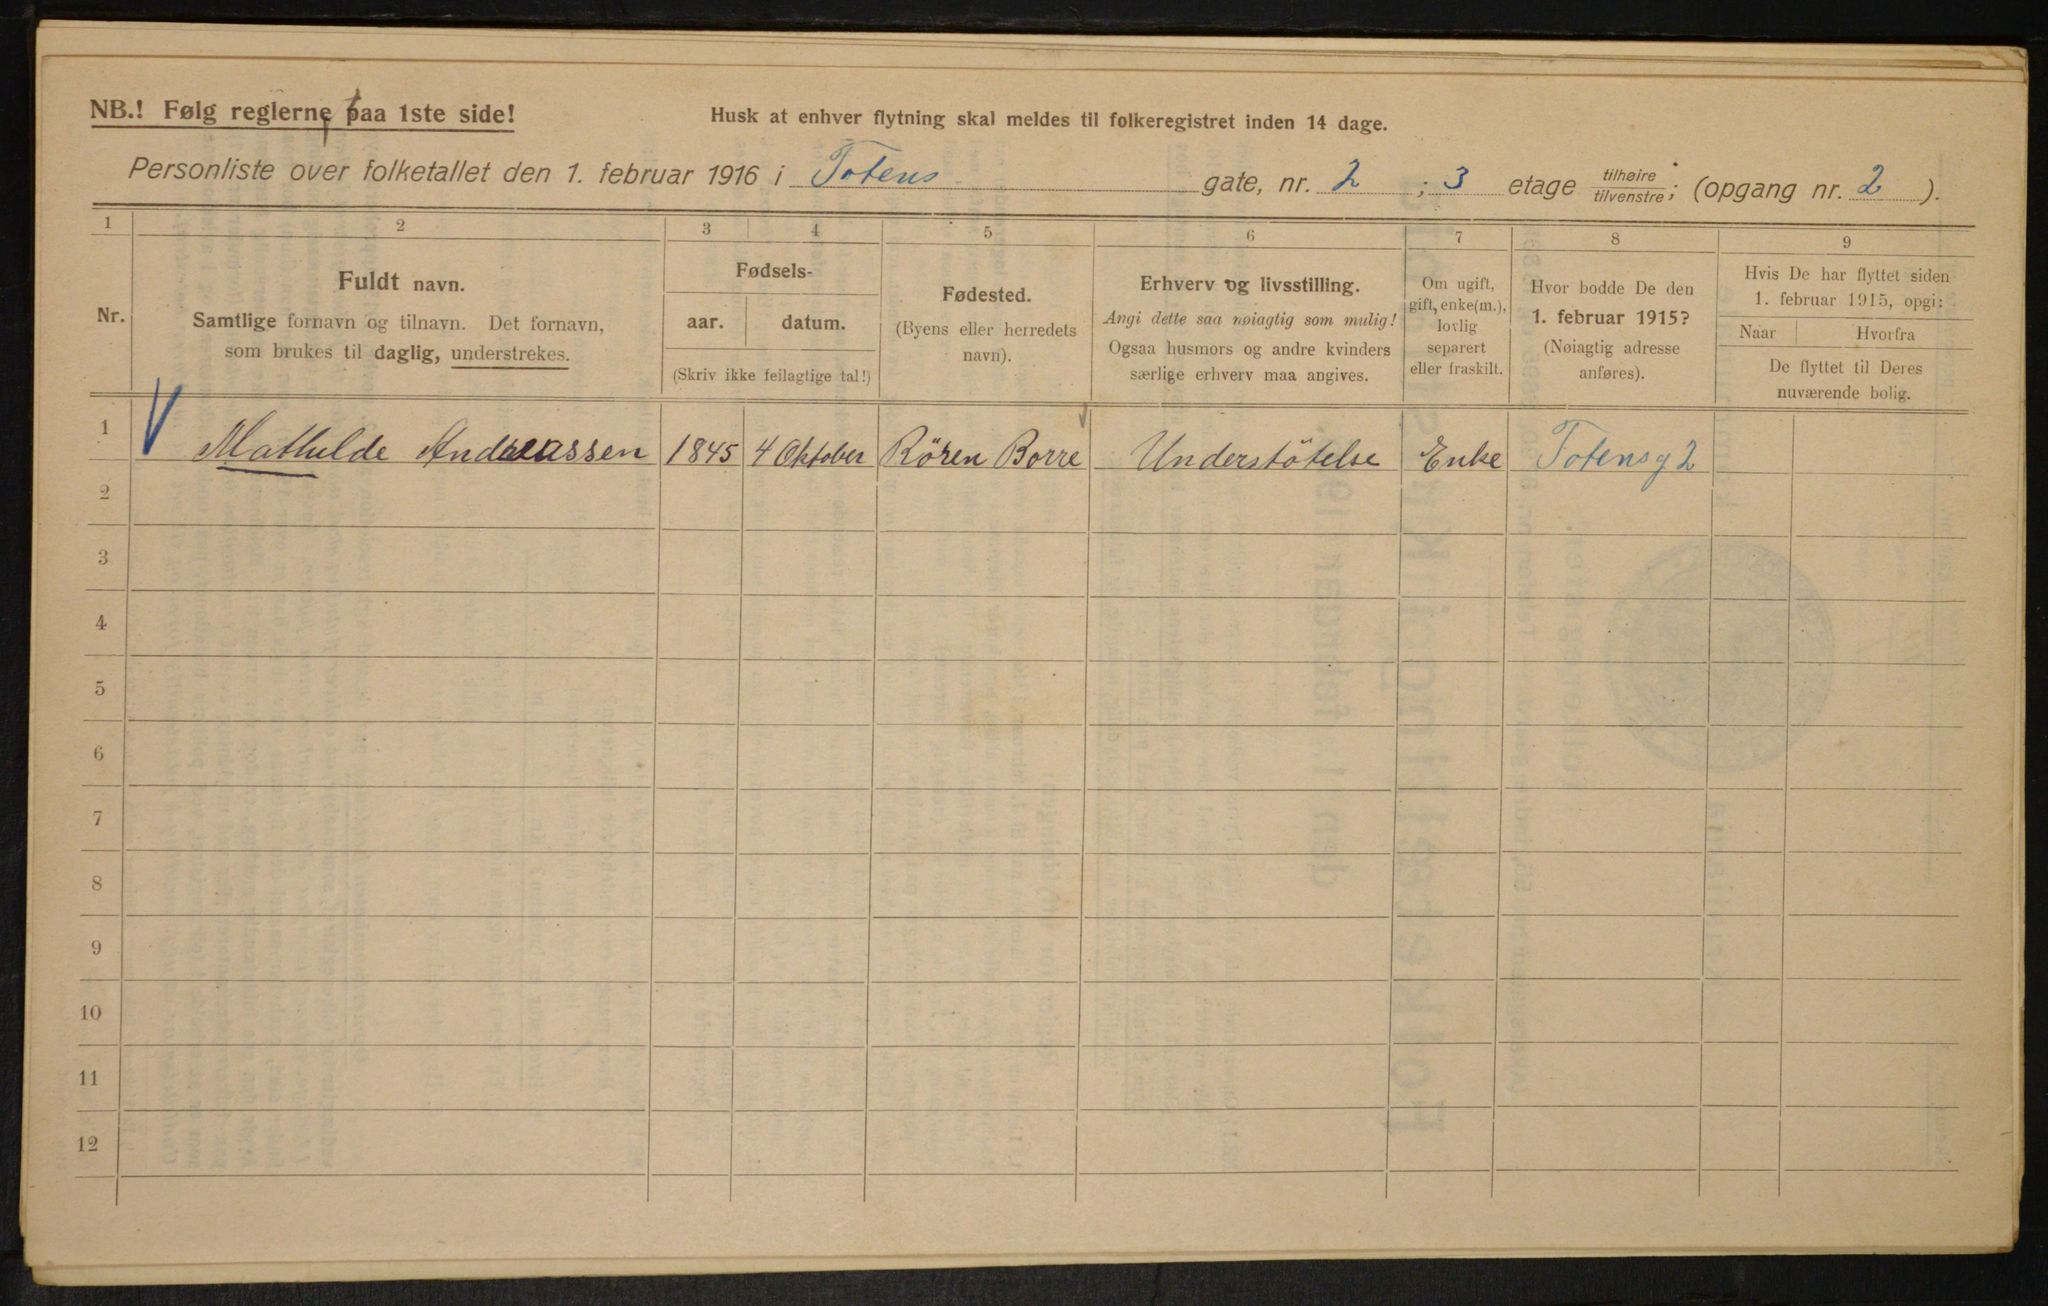 NB.! Følg reglerne paa 1ste side!
Husk at enhver flytning skal meldes til folkeregistret inden 14 dage.
Personliste over folketallet den 1. februar 1916 i Totens gate, nr. 2 ; 3 etage tilhøire/tilvenstre; (opgang nr. 2 ).
1 2 3 4 5 6 7 8 9
Nr.
Fuldt navn.
Samtlige fornavn og tilnavn. Det fornavn,
som brukes til daglig, understrekes.
Fødsels-
aar. datum.
(Skriv ikke feilagtige tal!)
Fødested.
(Byens eller herredets
navn).
Erhverv og livsstilling.
Angi dette saa nøiagtig som mulig!
Ogsaa husmors og andre kvinders
særlige erhverv maa angives.
Om ugift,
gift, enke(m.),
lovlig
separert
eller fraskilt.
Hvor bodde De den
1. februar 1915?
(Nøiagtig adresse
anføres).
Hvis De har flyttet siden
1. februar 1915, opgi:
Naar Hvorfra
De flyttet til Deres
nuværende bolig.
1 Mathilde Andreassen 1845 4 Oktober Rören Borre Understötelse Enke Totensg 2
2
3
4
5
6
7
8
9
10
11
12